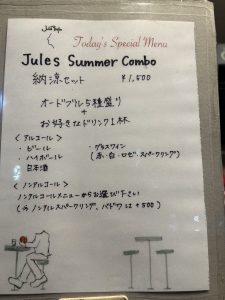 Today's Special Menu
Jules Summer Combo
納涼セット ¥1,500
オードブル5種盛り
+
お好きなドリンク1杯
<アルコール>
・ビール ・グラスワイン
・ハイボール (赤・白・ロゼ・スパークリング)
・日本酒
<ノンアルコール>
ノンアルコールメニューからお選び下さい
(ノンアルスパークリング、バドワは+500)